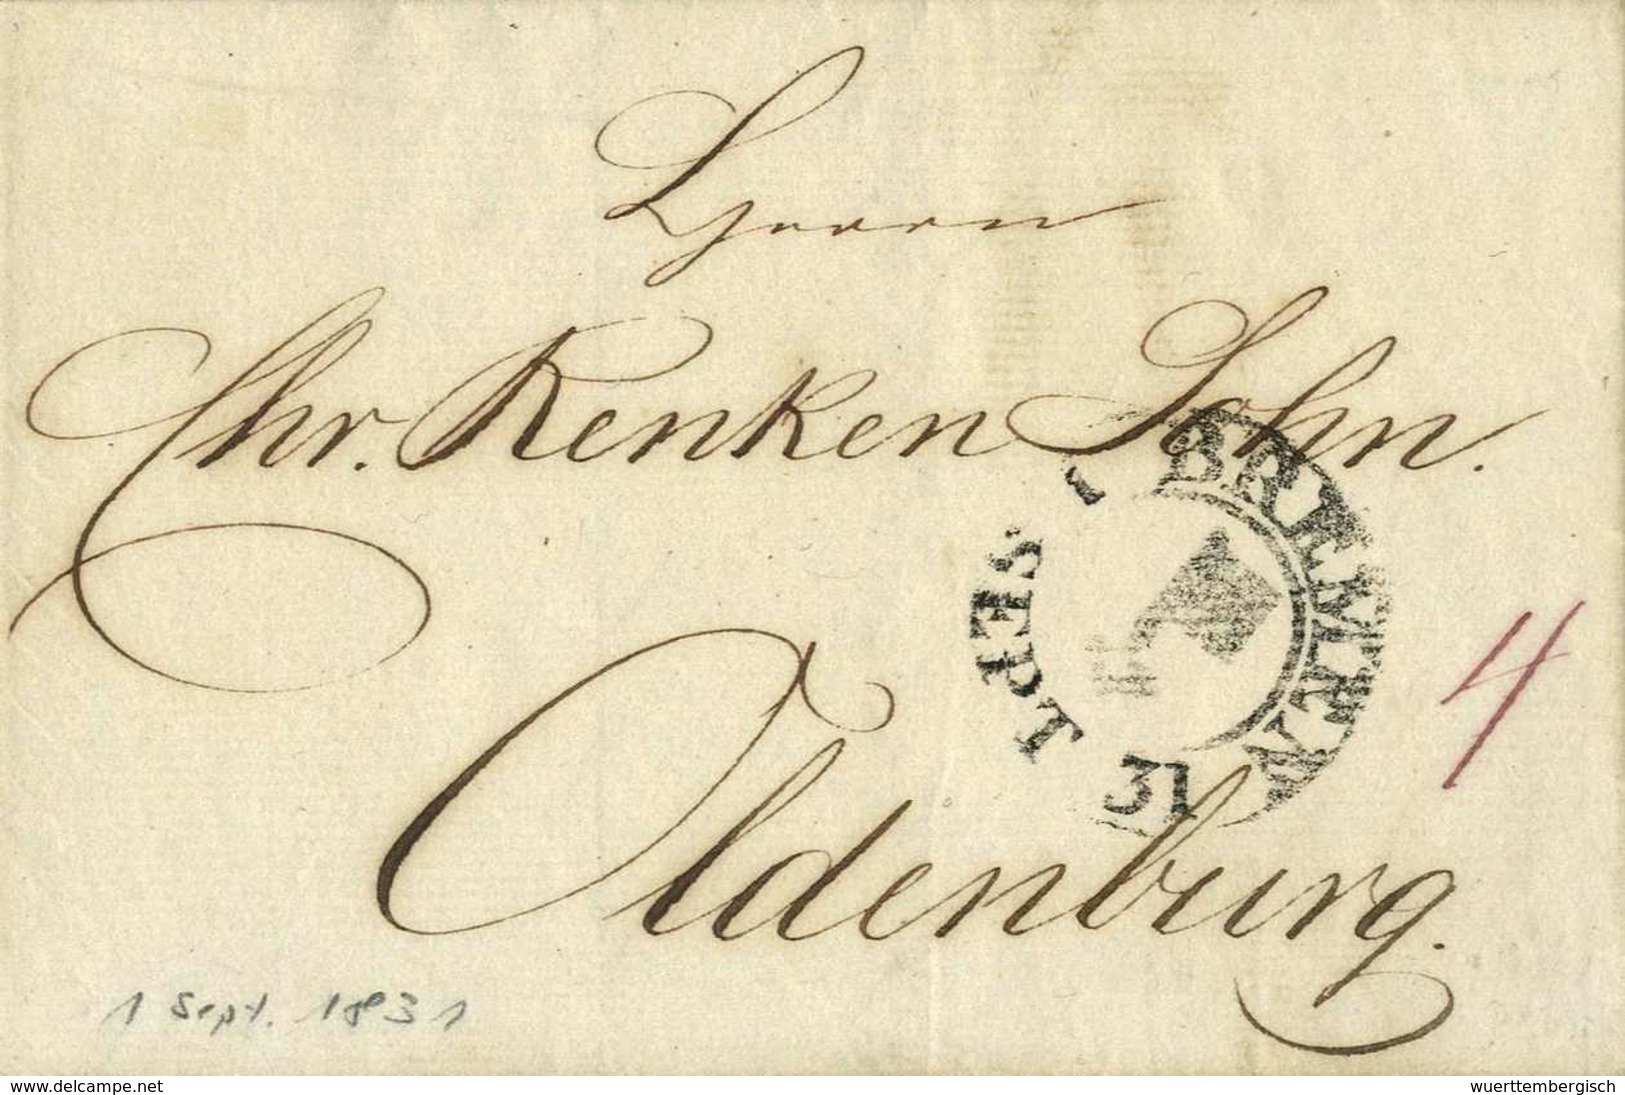 Herrn
Chr. Renken Sohn.
BREMEN
1 SEPT. 31
4
Oldenburg.
1 Sept. 1831
www.delcampe.net
wuerttembergisch